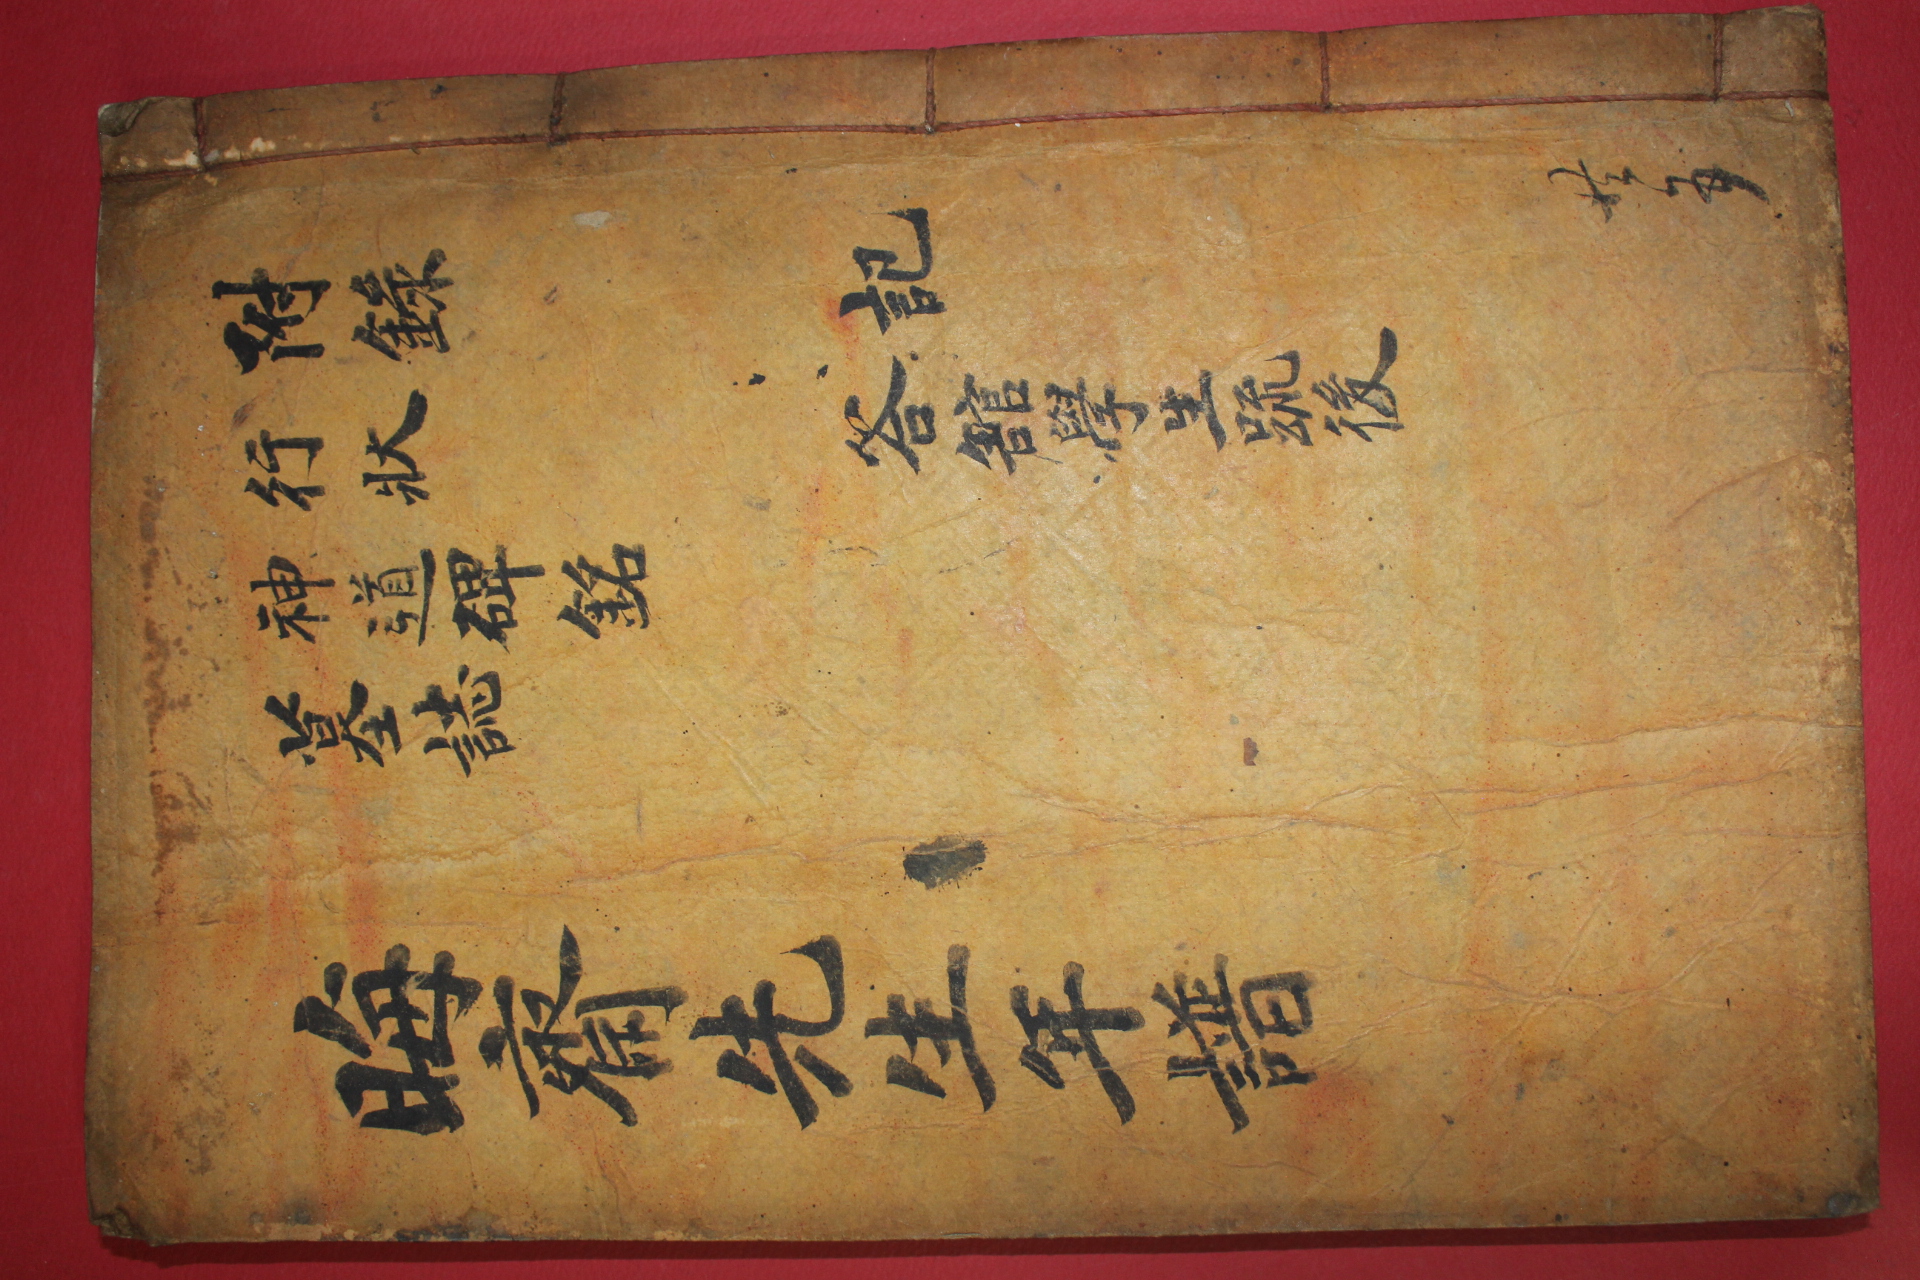 附錄
行狀
神道碑銘
墓誌
記
答舘學生䟽後
晦齋先生年譜
共